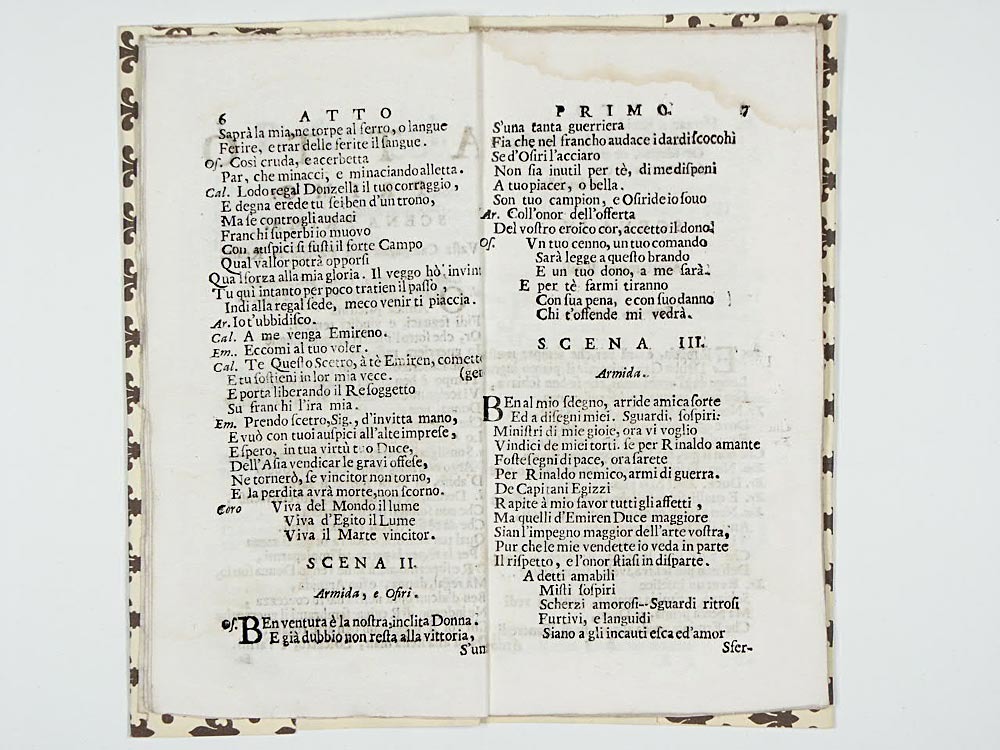 6 ATTO
Saprà la mia, ne torpe al ferro, o langue
Ferire, e trar delle ferite il sangue.
Os. Così cruda, e acerbetta
Par, che minacci, e minaciando alletta.
Cal. Lodo regal Donzella il tuo corraggio,
E degna erede tu sei ben d'un trono,
Ma se contro gli audaci
Franchi superbi io muovo
Con auspici si fusti il forte Campo
Qual vallor potrà opporsi
Qua lsforza alla mia gloria. Il veggo hò' invin
Tu quì intanto per poco tratien il passo,
Indi alla regal sede, meco venir ti piaccia.
Ar. Io t'ubbidisco.
Cal. A me venga Emireno.
Em.. Eccomi al tuo voler.
Cal. Te Questo Scetro, à tè Emiren, comett
E tu sostieni in lor mia vece. (ger
E porta liberando il Resoggetto
Su franchi l'ira mia.
Em. Prendo scetro, Sig., d'invitta mano,
E vuò con tuoi auspici all'alte imprese,
E spero, in tua virtù tuo Duce,
Dell'Asia vendicar le gravi offese,
Ne tornerò, se vincitor non torno,
E la perdita avrà morte, non scorno.
Coro Viva del Mondo il lume
Viva d'Egito il Lume
Viva il Marte vincitor.
SCENA II.
Armida, e Osiri.
Os. BEn ventura è la nostra, inclita Donna.
E già dubbio non resta alla vittoria,
S'un
PRIMO. 7
S'una tanta guerriera
Fia che nel francho audace i dardi scochi
Se d'Osiri l'acciaro
Non sia inutil per tè, di me disponi
A tuo piacer, o bella.
Son tuo campion, e Osiride io souo
Ar. Coll'onor dell'offerta
Del vostro eroico cor, accetto il dono.
Os. Vn tuo cenno, un tuo comando
Sarà legge a questo brando
E un tuo dono, a me sarà.
E per tè farmi tiranno
Con sua pena, e con suo danno
Chi t'offende mi vedrà.
SCENA III.
Armida.
BEn al mio sdegno, arride amica sorte
Ed a disegni miei. Sguardi, sospiri:
Ministri di mie gioie, ora vi voglio
Vindici de miei torti. se per Rinaldo amante
Foste segni di pace, ora sarete
Per Rinaldo nemico, armi di guerra.
De Capitani Egizzi
Rapite à mio favor tutti gli affetti,
Ma quelli d'Emiren Duce maggiore
Sian l'impegno maggior dell'arte vostra,
Pur che le mie vendette io veda in parte
Il rispetto, e l'onor stiasi in disparte.
A detti amabili
Misti sospiri
Scherzi amorosi--Sguardi ritrosi
Furtivi, e languidi
Siano a gli incauti esca ed'amor
Sfer-